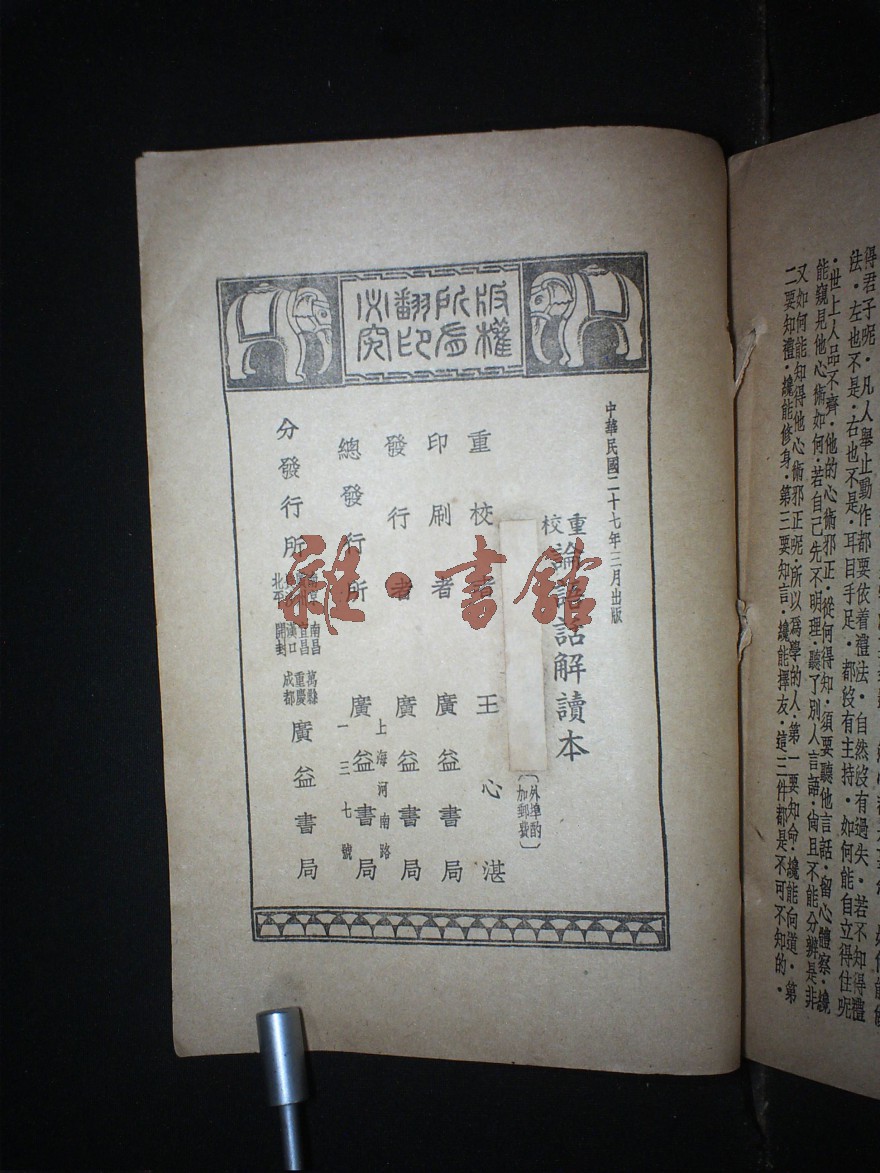 得君子呢．凡人舉止動作都要依着禮法．自然沒有過失．若不知得禮
法．左也不是．右也不是．耳目手足．都沒有主持．如何能自立得住呢
．世上人品不齊．他的心術邪正．從何得知．須要聽他言話．留心體察．纔
能窺見他心術如何．若自己先不明理．聽了別人言語．尙且不能分辨是非
又如何能知得他心術邪正呢．所以爲學的人．第一要知命．纔能向道．第
二要知禮．纔能修身．第三要知言．纔能擇友．這三件都是不可不知的．
版權所有翻印必究
中華民國二十七年三月出版
重校論語話解讀本
〔外埠酌加郵費〕
重校者 王心湛
印刷者 廣益書局
發行者 廣益書局
總發行所 上海河南路一三七號 廣益書局
分發行所 北平 南昌 宜昌 漢口 開封 萬縣 重慶 成都 廣益書局
雜·書館